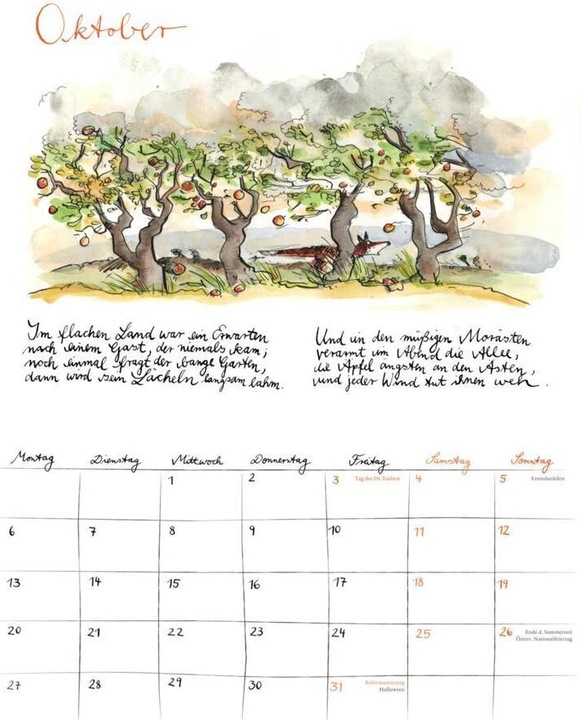 Oktober
Im flachen Land war ein Erwarten
nach einem Gast, der niemals kam;
noch einmal fragt der bange Garten,
dann wird sein Lächeln langsam lahm.
Und in den müßigen Morästen
verarmt am Abend die Allee,
die Äpfel ängsten an den Ästen,
und jeder Wind tut ihnen weh.
Montag Dienstag Mittwoch Donnerstag Freitag Samstag Sonntag
1 2 3 Tag der Dt. Einheit 4 5 Erntedankfest
6 7 8 9 10 11 12
13 14 15 16 17 18 19
20 21 22 23 24 25 26 Ende d. Sommerzeit
Österr. Nationalfeiertag
27 28 29 30 31 Reformationstag
Halloween